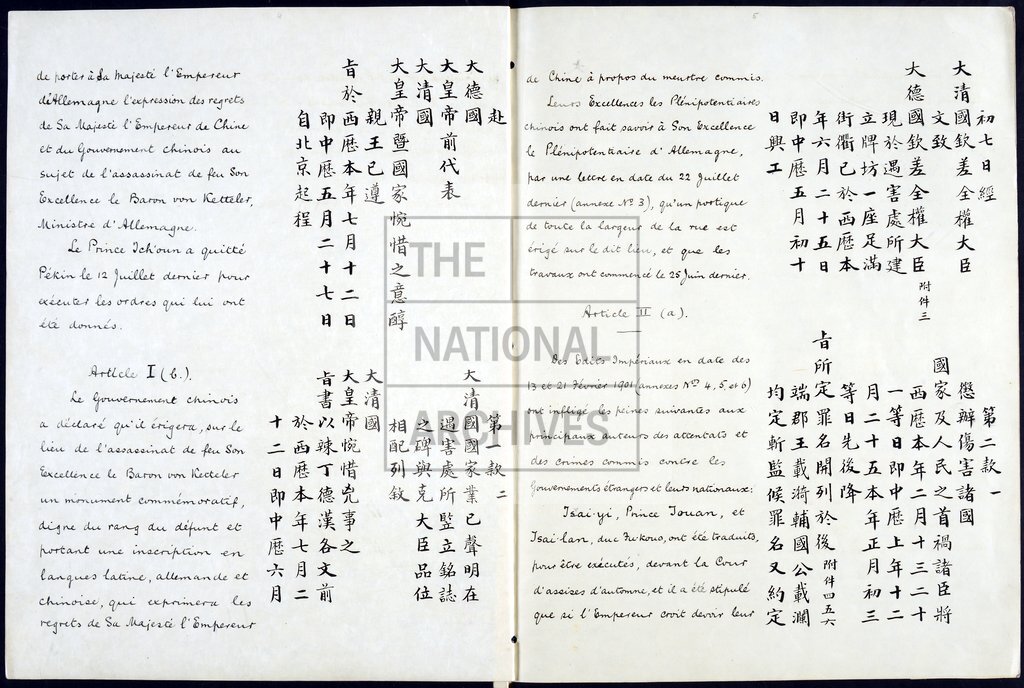 de porter à Sa Majesté l'Empereur
d'Allemagne l'expression des regrets
de Sa Majesté l'Empereur de Chine
et du Gouvernement chinois au
sujet de l'assassinat de feu Son
Excellence le Baron von Ketteler,
Ministre d'Allemagne.
Le Prince Tch'oun a quitté
Pékin le 12 Juillet dernier pour
exécuter les ordres qui lui ont
été donnés.
Article I (b.).
Le Gouvernement chinois
a déclaré qu'il érigera, sur le
lieu de l'assassinat de feu Son
Excellence le Baron von Ketteler
un monument commémoratif,
digne du rang du défunt et
portant une inscription en
langues latine, allemande et
chinoise, qui exprimera les
regrets de Sa Majesté l'Empereur
赴
大德國
大皇帝前代表
大清國
大皇帝暨國家惋惜之意醇
親王已遵
旨於西歷本年七月十二日
即中歷五月二十七日
自北京起程
第一款 二
大清國國家業已聲明在
遇害處所竪立銘誌
之碑與克大臣品位
相配列敘
大清國
大皇帝惋惜兇事之
旨書以辣丁德漢各文前
於西歷本年七月二
十二日即中歷六月
de Chine à propos du meurtre commis.
Leurs Excellences les Plénipotentiaires
chinois ont fait savoir à Son Excellence
le Plénipotentiaire d'Allemagne,
par une lettre en date du 22 Juillet
dernier (annexe No. 3), qu'un portique
de toute la largeur de la rue est
érigé sur le dit lieu, et que les
travaux ont commencé le 25 Juin dernier.
Article II (a).
Des Edits Impériaux en date des
13 et 21 Février 1901 (annexes Nos. 4, 5, et 6)
ont infligé les peines suivantes aux
principaux auteurs des attentats et
des crimes commis contre les
Gouvernements étrangers et leurs nationaux:
Tsai-yi, Prince Touan, et
Tsai-lan, duc Fu-kouo, ont été traduits,
pour être exécutés, devant la Cour
d'assises d'automne, et il a été stipulé
que si l'Empereur croit devoir leur
5
初七日經
大清國欽差全權大臣
文致
大德國欽差全權大臣 附件三
現於遇害處所建
立牌坊一座足滿
街衢已於西歷本
年六月二十五日
即中歷五月初十
日興工
第二款 一
懲辦傷害諸國
國家及人民之首禍諸臣將
西歷本年二月十三二十
一等日即中歷上年十二
月二十五本年正月初三
等日先後降
旨所定罪名開列於後 附件四五六
端郡王載漪輔國公載瀾
均定斬監候罪名又約定
THE
NATIONAL
ARCHIVES